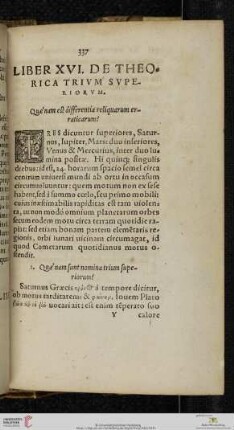 337
LIBER XVI. DE THEO-
RICA TRIVM SVPE-
RIORVM.
Quænam est differentia reliquarum er-
raticarum?
TRES dicuntur superiores, Satur-
nus, Iupiter, Mars: duo inferiores,
Venus & Mercurius, inter duo lu-
mina positæ. Hi quinq; singulis
diebus id est, 24. horarum spacio semel circa
centrum uniuersi mundi ab ortu in occasum
circumuoluuntur: quem motum non ex sese
habent, sed à summa cœlo, seu primo mobili
rapiditate
ta, ut non modò omnium planetarum orbes
secum eodem motu circa terram quotidie ra-
piat: sed etiam bonam partem elemētaris re-
gionis, orbi lunari uicinam circumagat, id
quod Cometarum quotidianus motus o-
stendit.
1. Quænam sunt nomina trium supe-
riorum?
Saturnus Græcis à tempore dicitur,
ob motus tarditatem: & Iouem Plato
uocari ait: est enim
Y calore